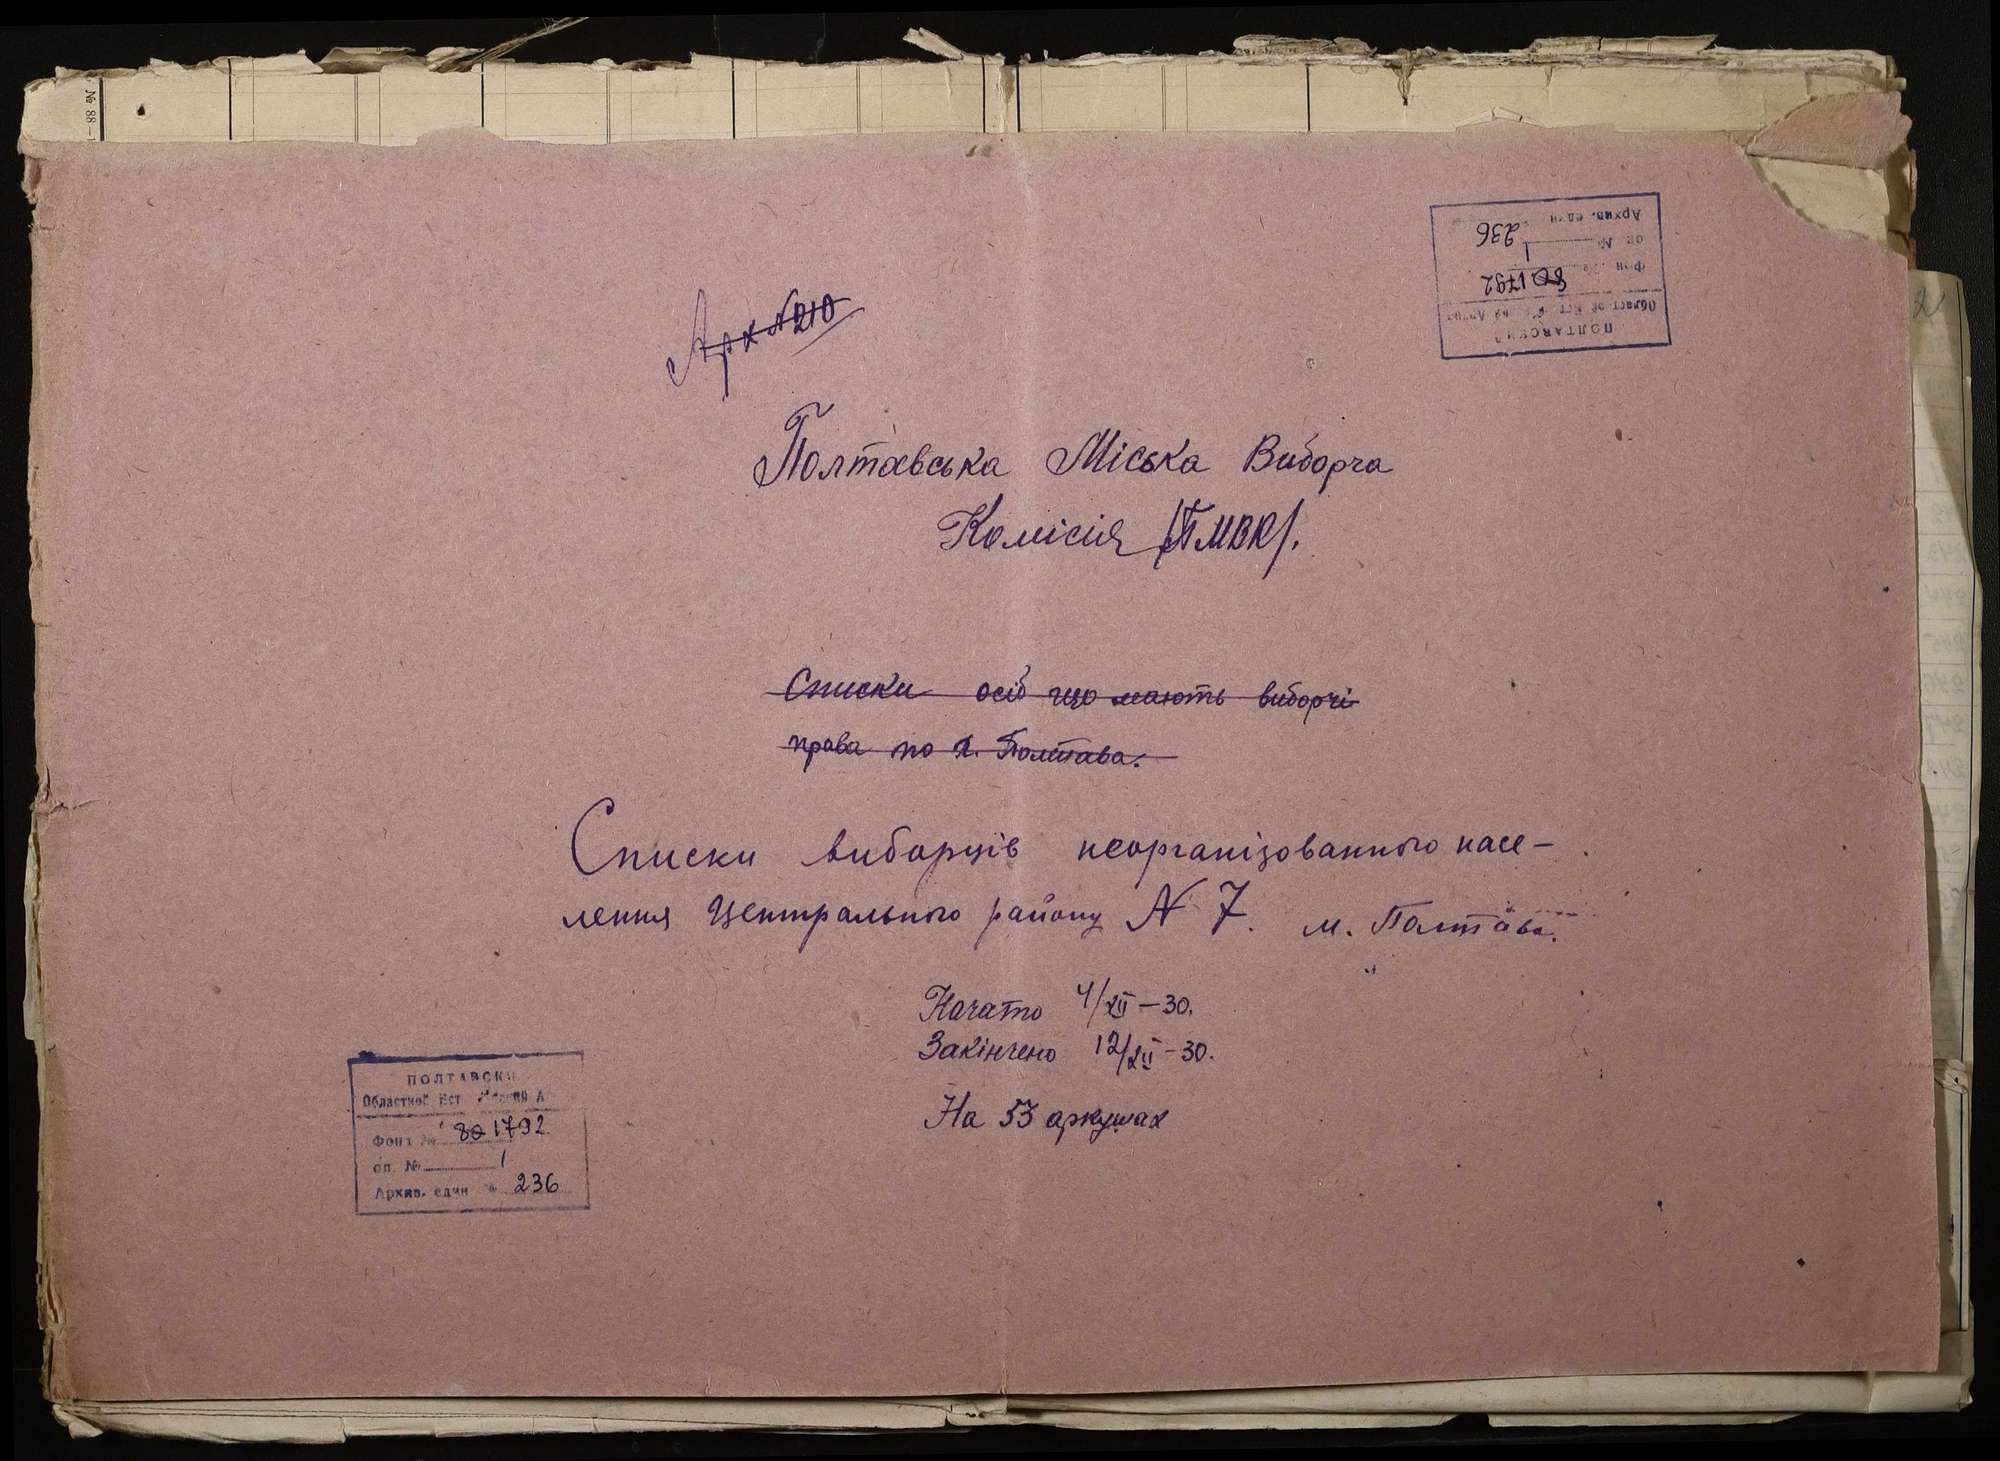 № 88
Арх №210
ПОЛТАВСКИЙ
Областной Ист
Фон № 80 1792
оп. № 1
Архив. един 236
Полтавська Міська Виборча
Комісія /ПМВК/.
Списки осіб що мають виборчі
права по м. Полтава.
Списки виборців неорганізованного насе-
лення Центрального району N 7. м. Полтава.
Начато 4/XII-30.
Закінчено 12/XII-30.
На 53 аркушах
ПОЛТАВСКИ
Областной Ист
Фонд № 80 1792
оп. № 1
Архив. един № 236